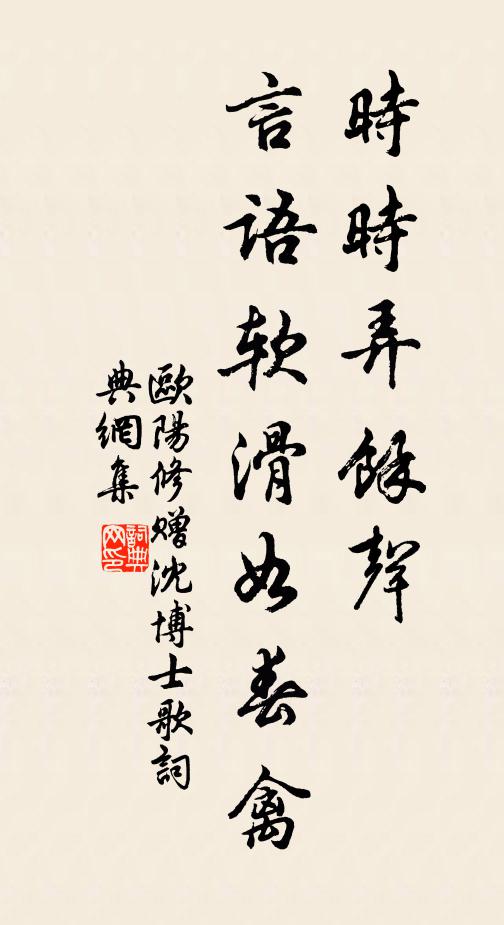 時時弄餘聲
言語软滑如春禽
歐陽修赠沈博士歌詞
典網集
詞典
网印